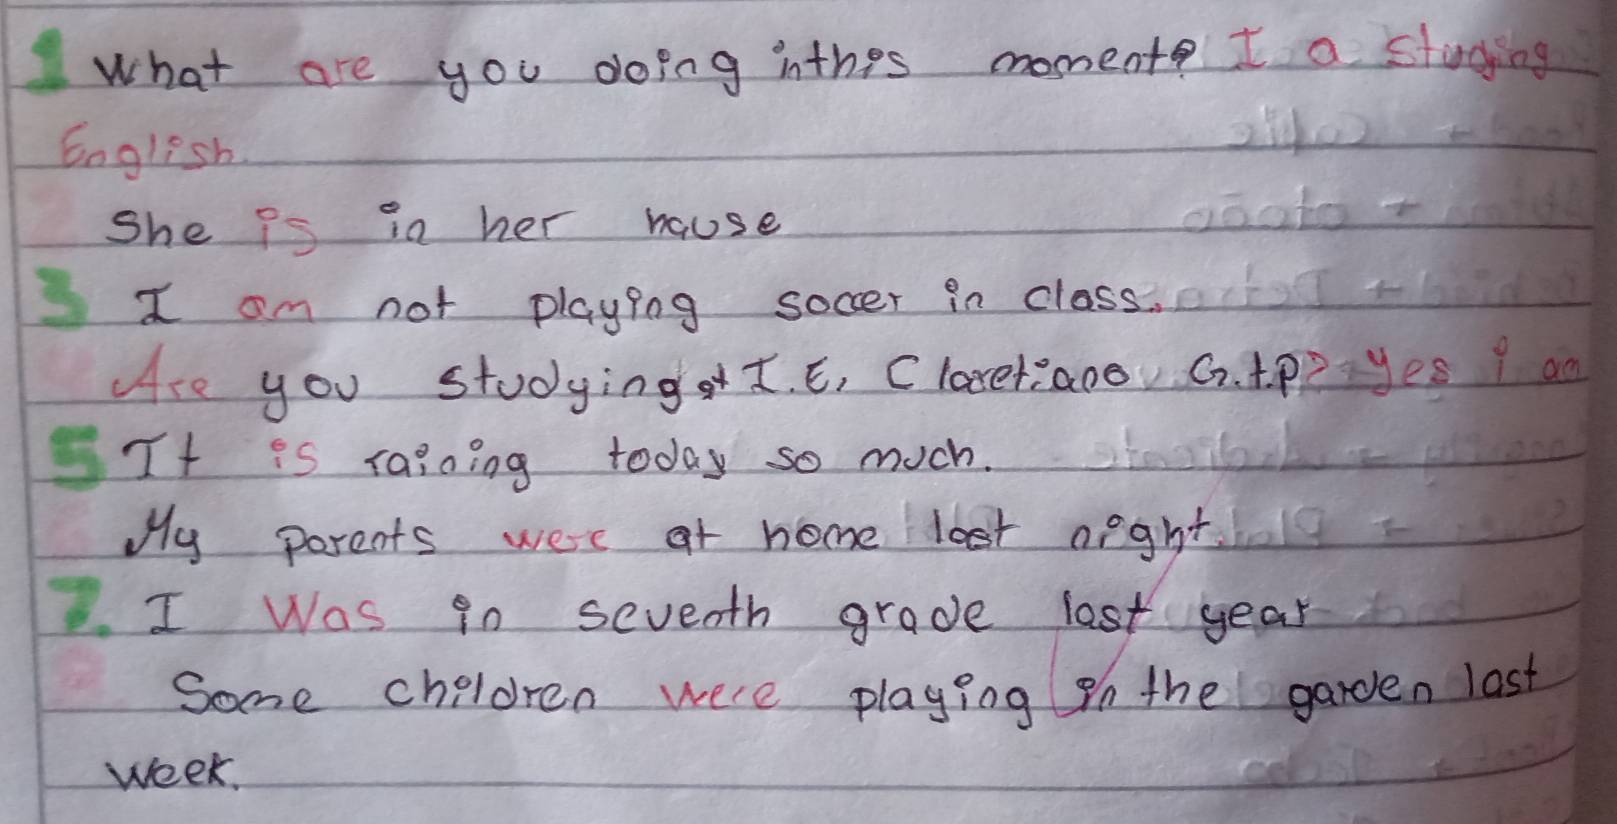 1 What are you doing in this moment? I a studing
English.
2 She is in her hause
3 I am not playing soccer in class.
4 Are you studying at I.E. Claretiano G.t.p? yes i am
5 It is raining today so much.
6 My parents were at home last night.
7. I Was in seventh grade last year
8 Some children were playing in the garden last
week.